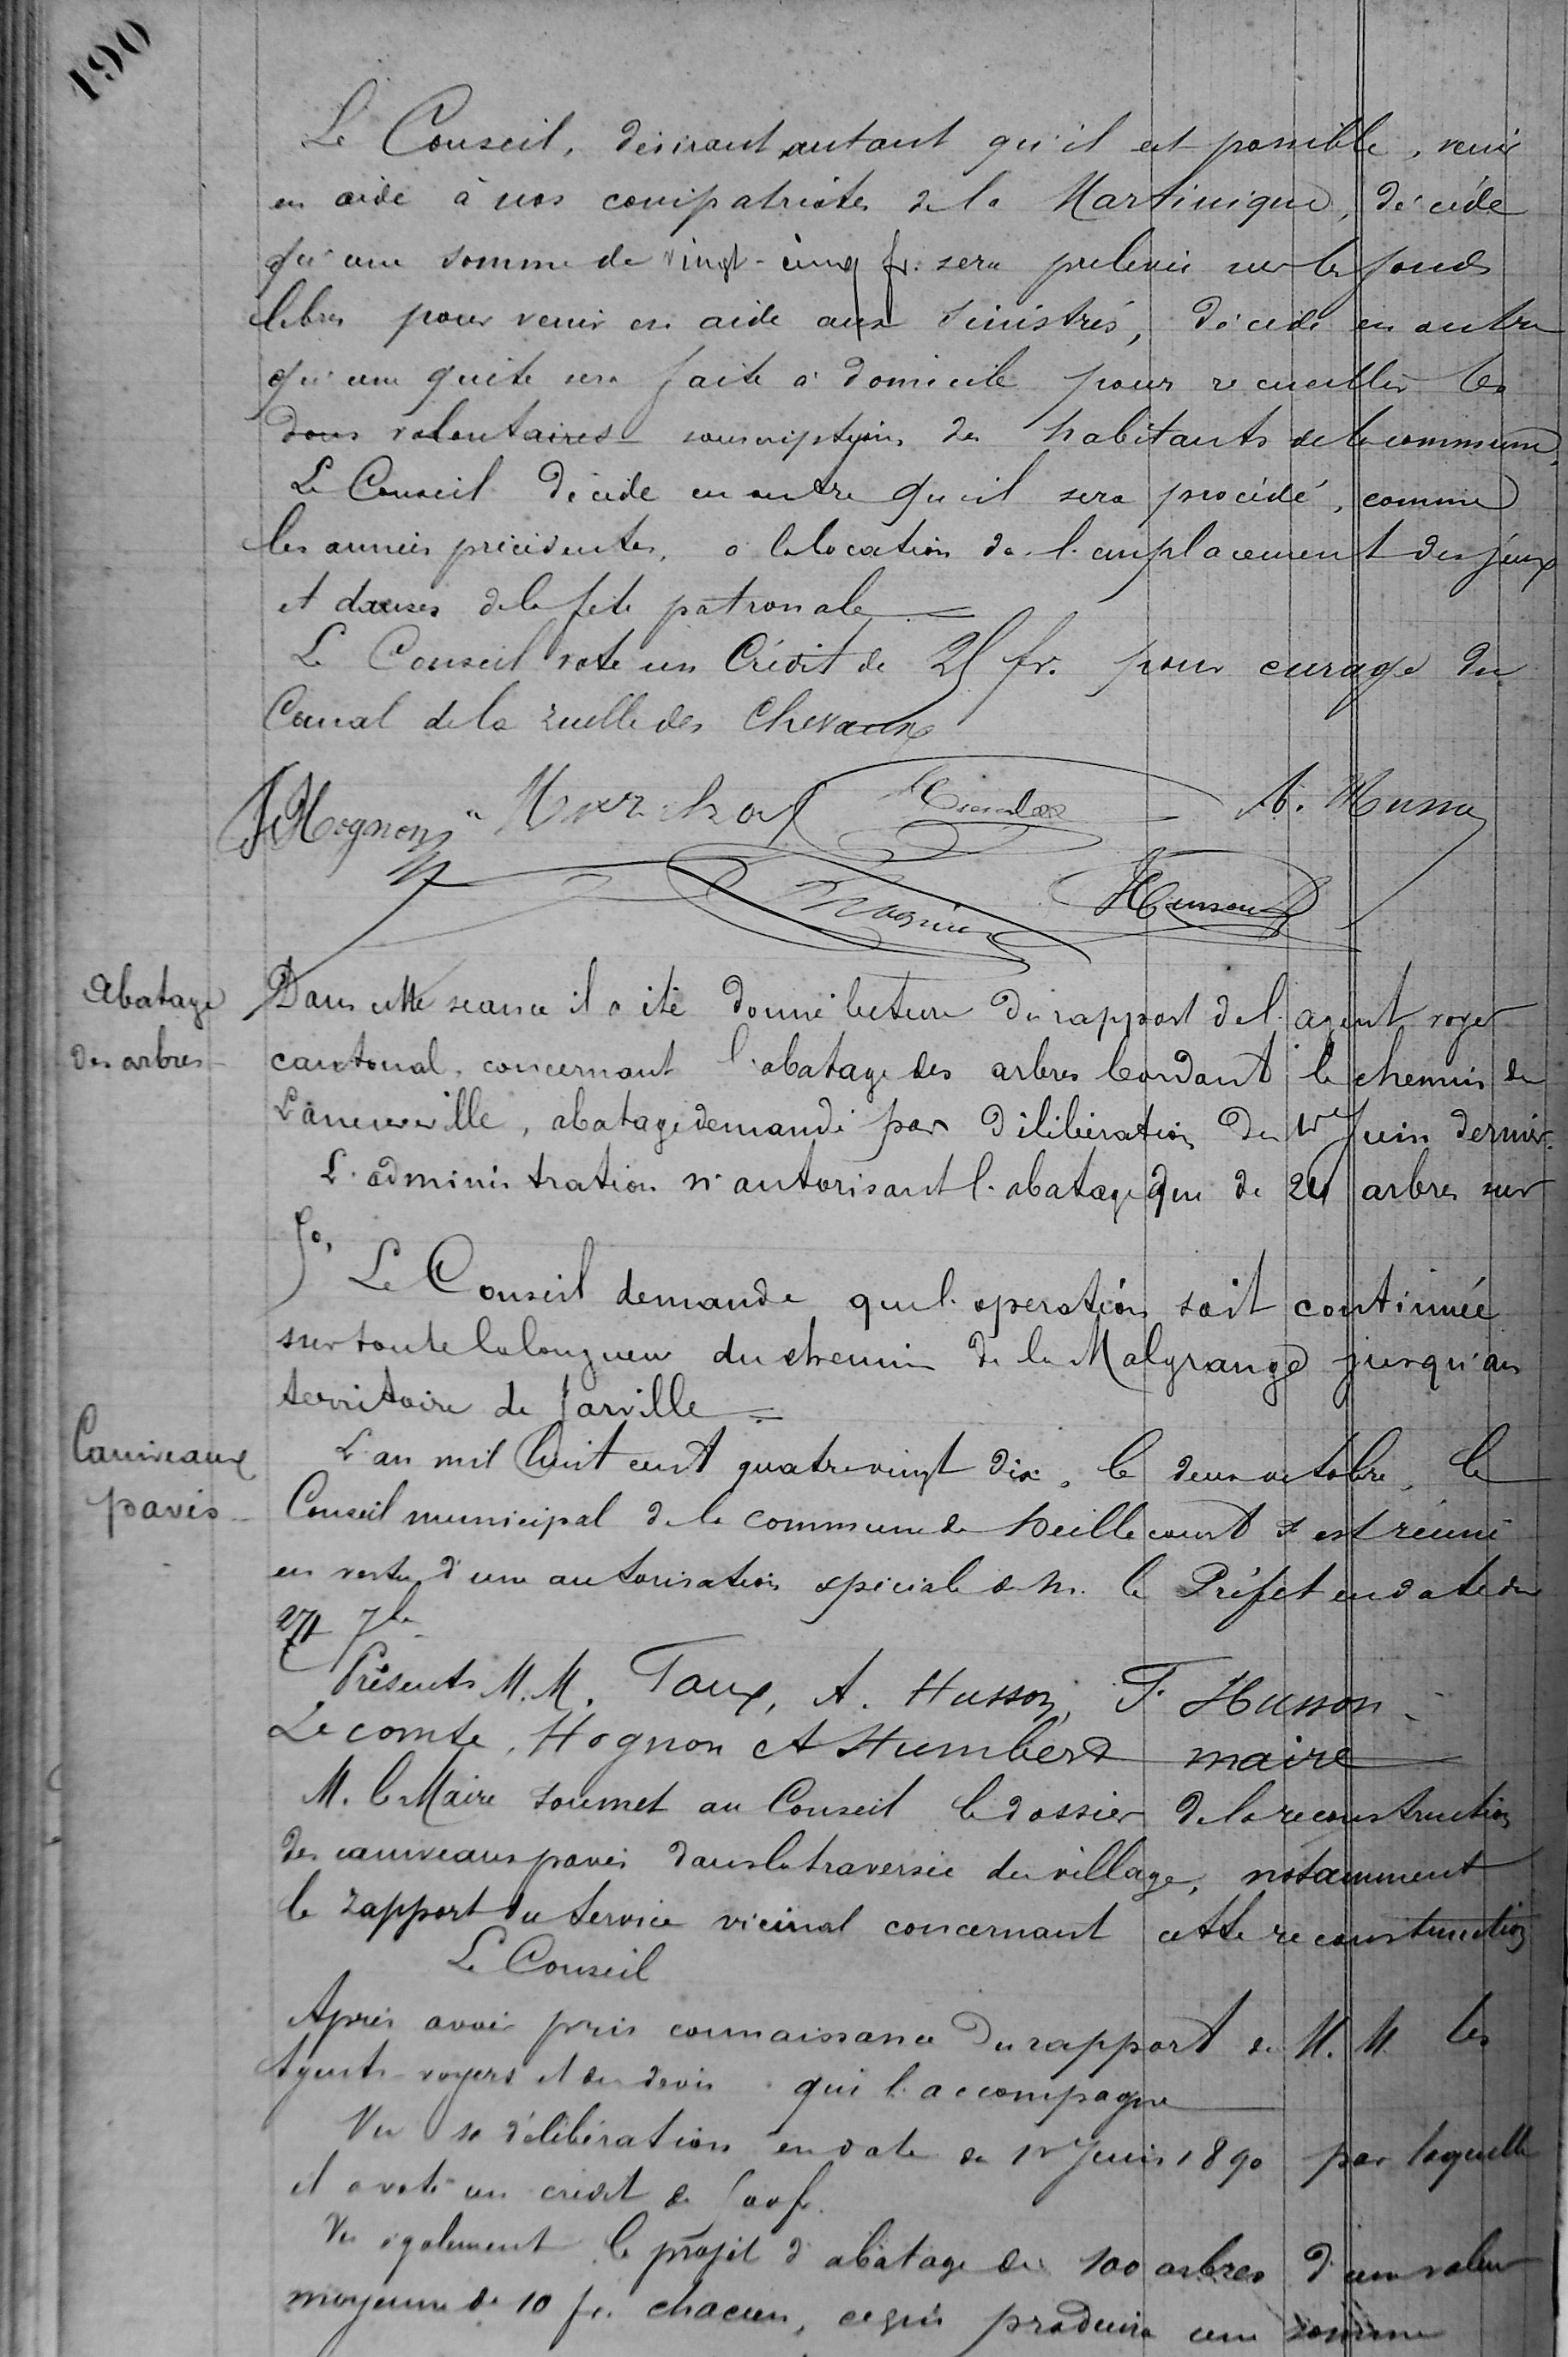 190
Le Conseil, désirant, autant qu'il est possible, venir
en aide à nos compatriotes de la Martinique, décide
qu'une somme de vingt-cinq fr. sera prélevée sur les fonds
libres pour venir en aide aux sinistrés, décide en outre
qu'une quête sera faite à domicile pour recueillir les
dons volontaires souscriptions des habitants de la commune.
Le Conseil décide en outre qu'il sera procédé, comme
les années précédentes, à la location de l'emplacement des jeux
et danses de la fête patronale
Le Conseil vote un Crédit de 25 fr. pour curage du
Canal de la ruelle des Chevaux
Hognon Marchal A. Husson
F Husson
Abatage
des arbres
Dans cette séance il a été donné lecture du rapport de l'agent voyer
cantonal, concernant l'abatage des arbres bordant le chemin de
Laneuveville, abatage demandé par délibération du 1er Juin dernier.
L'administration n'autorisant l'abatage que de 24 arbres sur
50,
Le Conseil demande que l'opération soit continuée
sur toute la longueur du chemin de la Malgrange jusqu'au
territoire de Jarville
Caniveaux
pavés
L'an mil huit cent quatre vingt dix, le deux octobre, le
Conseil municipal de la commune de Heillecourt s'est réuni
en vertu d'une autorisation spéciale de M. le Préfet en date du
27 7bre
Présents M.M. Taux, A. Husson, F. Husson
Lecomte, Hognon et Humbert maire
M. le Maire soumet au Conseil le dossier de la reconstruction
des caniveaux pavés dans la traversée du village, notamment
le rapport du Service vicinal concernant cette reconstruction
Le Conseil
Après avoir pris connaissance du rapport de M.M. les
Agents-voyers et du devis qui l'accompagne
Vu sa délibération en date du 1er Juin 1890 par laquelle
il a voté un crédit de 500 f.
Vu également le projet d'abatage de 100 arbres d'une valeur
moyenne de 10 fr. chacun, ce qui produira une somme